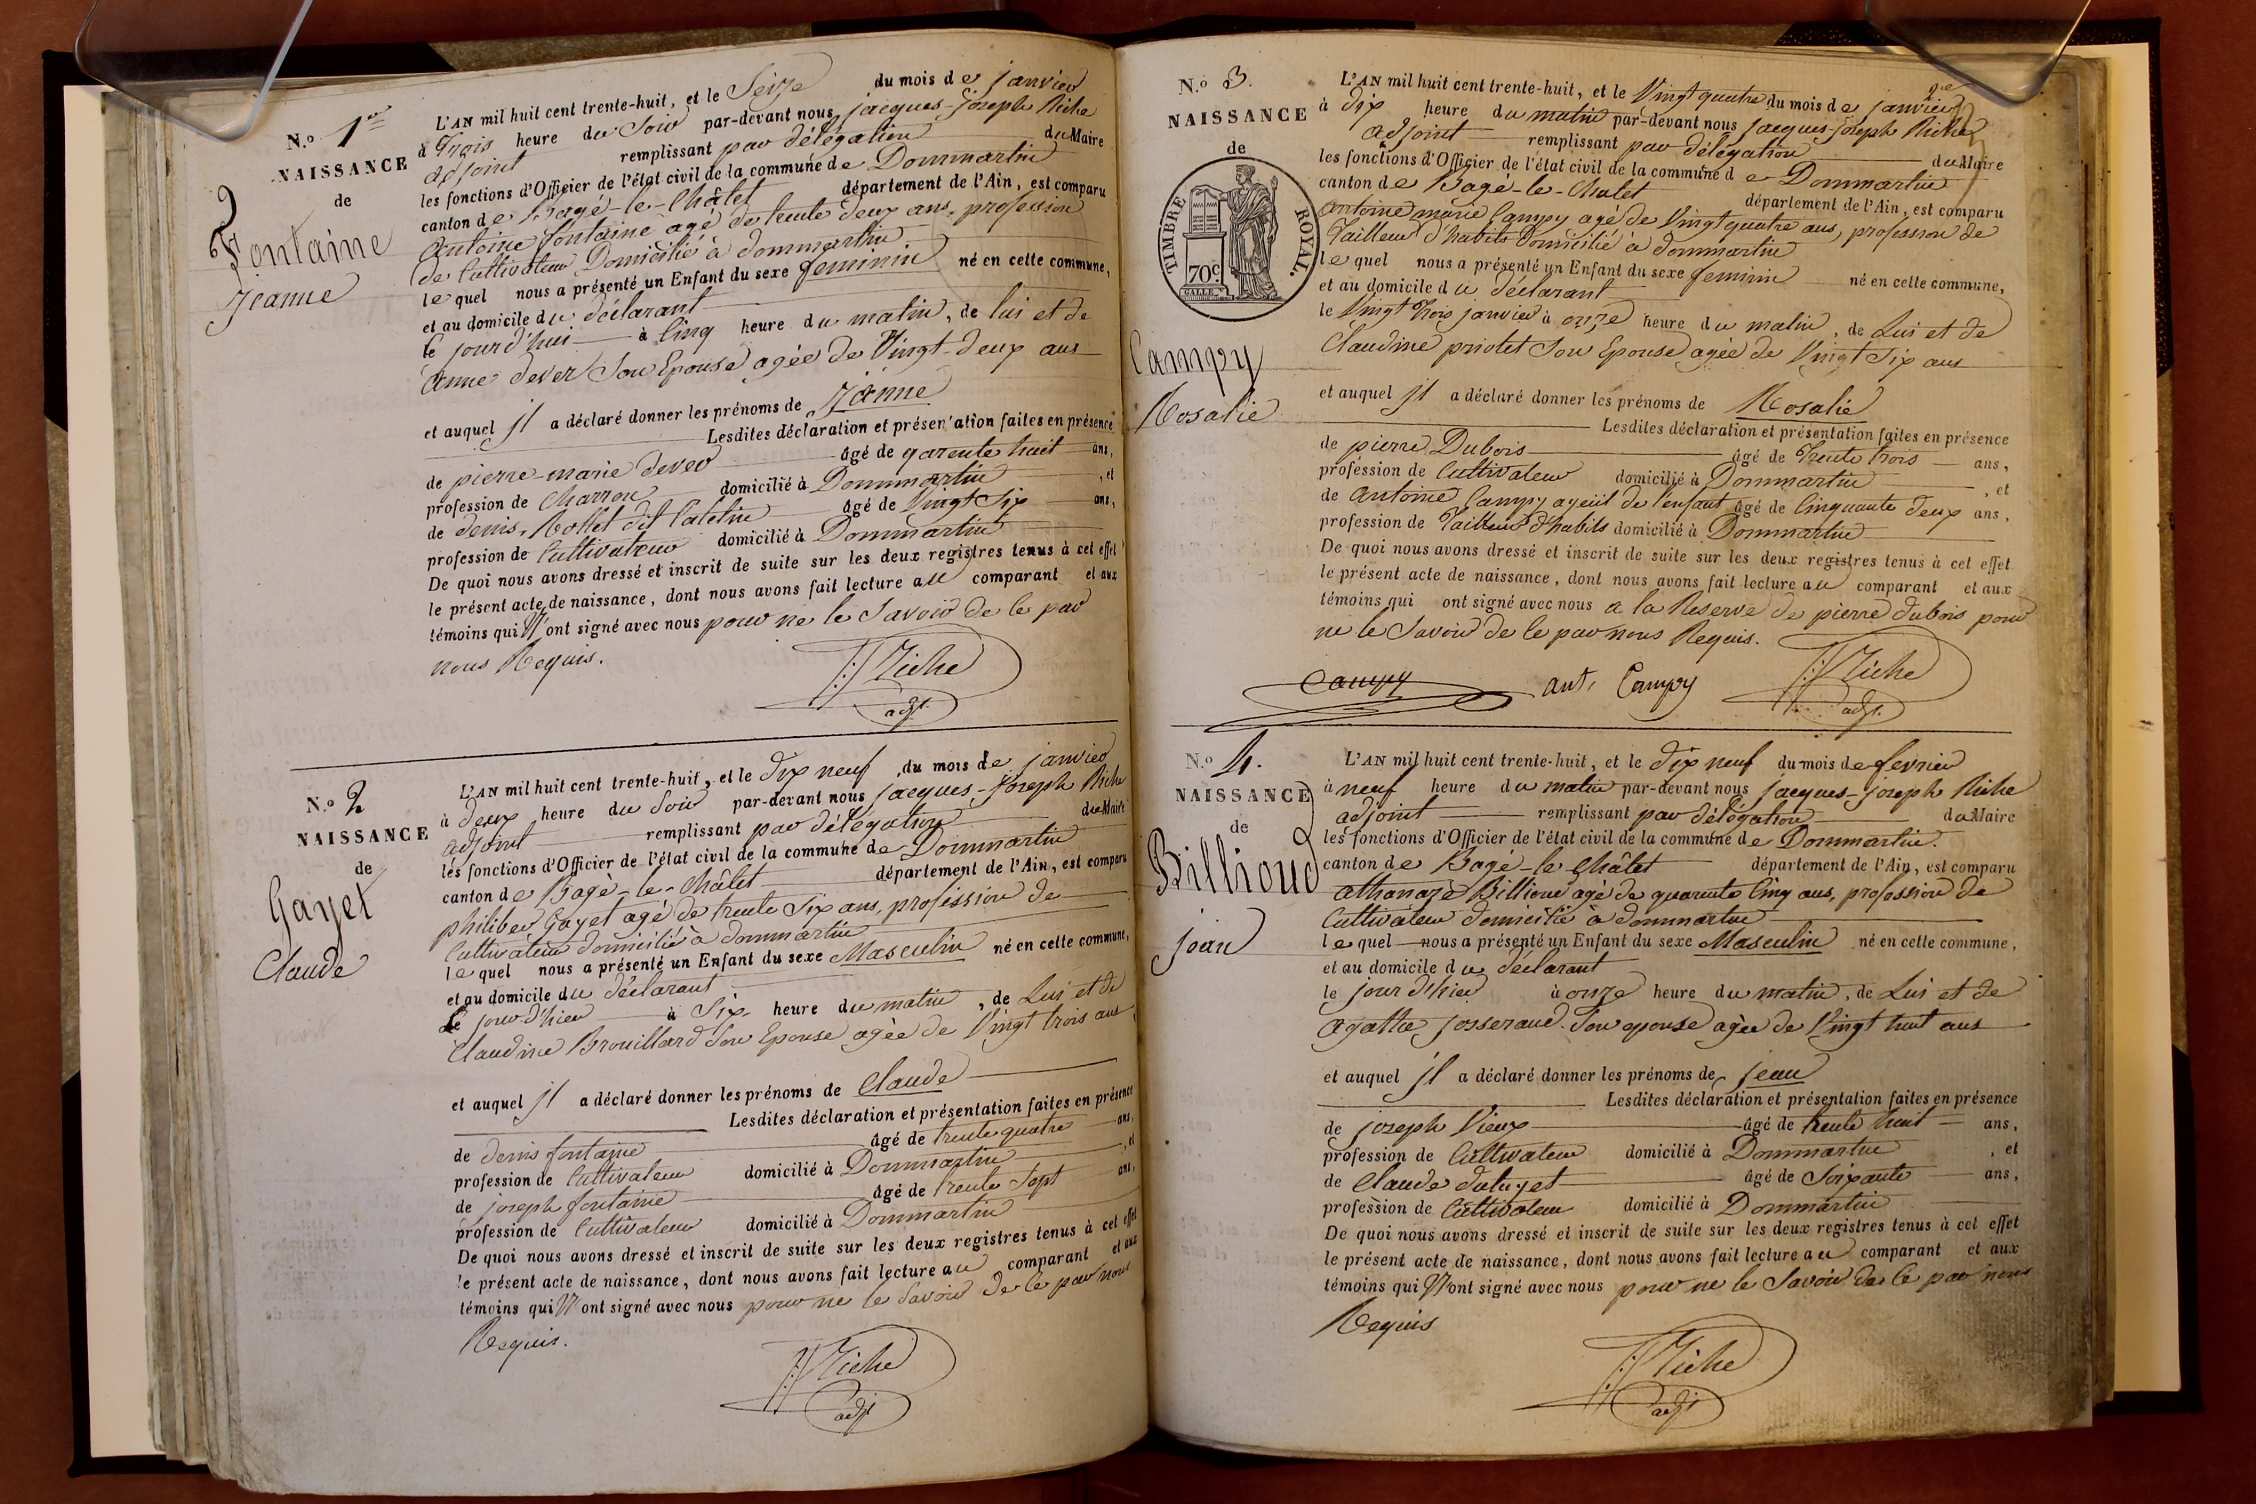 N.º 1er
NAISSANCE
de
Fontaine
Jeanne
L'AN mil huit cent trente-huit, et le Seize du mois de janvier
à Trois heure du Soir par-devant nous jacques-joseph Riche
adjoint remplissant par délégation du Maire
les fonctions d'Officier de l'état civil de la commune de Dommartin
canton de Bagé-le-Châtel département de l'Ain, est comparu
antoine fontaine agé de trente deux ans, profession
de Cultivateur Domicilié à dommartin
lequel nous a présenté un Enfant du sexe feminin né en cette commune,
et au domicile du déclarant
le jour d'hui à Cinq heure du matin, de lui et de
anne dever Son Epouse agée de Vingt-deux ans
et auquel jl a déclaré donner les prénoms de jeanne
Lesdites déclaration et présentation faites en présence
de pierre-marie dever âgé de quarente huit ans,
profession de Charron domicilié à Dommartin, et
de denis, Rollet dit Catelin âgé de Vingt Six ans,
profession de Cultivateur domicilié à Dommartin
De quoi nous avons dressé et inscrit de suite sur les deux registres tenus à cet effet
le présent acte de naissance, dont nous avons fait lecture au comparant et aux
témoins qui N'ont signé avec nous pour ne le Savoir de ce par
nous Requis.
Riche
adjt.
N.º 2
NAISSANCE
de
Gayet
Claude
L'AN mil huit cent trente-huit, et le dix neuf du mois de janvier
à deux heure du Soir par-devant nous jacques-joseph Riche
adjoint remplissant par délégation du Maire
les fonctions d'Officier de l'état civil de la commune de Dommartin
canton de Bagé-le-Châtel département de l'Ain, est comparu
philiber Gayet agé de trente Six ans, profession de
Cultivateur domicilié à dommartin
lequel nous a présenté un Enfant du sexe Masculin né en cette commune,
et au domicile du déclarant
le jour d'hier à Six heure du matin, de Lui et de
Claudine Brouillard Son Epouse agée de Vingt trois ans
et auquel jl a déclaré donner les prénoms de Claude
Lesdites déclaration et présentation faites en présence
de denis fontaine âgé de trente quatre ans,
profession de Cultivateur domicilié à Dommartin, et
de joseph fontaine âgé de trente Sept ans,
profession de Cultivateur domicilié à Dommartin
De quoi nous avons dressé et inscrit de suite sur les deux registres tenus à cet effet
le présent acte de naissance, dont nous avons fait lecture au comparant et aux
témoins qui N'ont signé avec nous pour ne le Savoir de ce par nous
Requis.
Riche
adjt
N.º 3.
NAISSANCE
de
TIMBRE ROYAL.
70c
Campy
Rosalie
L'AN mil huit cent trente-huit, et le Vingt quatre du mois de janvier
à dix heure du matin par-devant nous jacques-joseph Riche
adjoint remplissant par délégation du Maire
les fonctions d'Officier de l'état civil de la commune de Dommartin
canton de Bagé-le-Chatel département de l'Ain, est comparu
antoine marie Campy agé de Vingt quatre ans, profession de
Tailleur d'habits Domicilié à dommartin
lequel nous a présenté un Enfant du sexe feminin né en cette commune,
et au domicile du déclarant
le Vingt trois janvier à onze heure du matin, de Lui et de
Claudine priotet Son Epouse agée de Vingt Six ans
et auquel jl a déclaré donner les prénoms de Rosalie
Lesdites déclaration et présentation faites en présence
de pierre Dubois âgé de trente trois ans,
profession de Cultivateur domicilié à Dommartin, et
de antoine Campy ayeül de l'enfant âgé de Cinquante deux ans,
profession de Tailleur d'habits domicilié à Dommartin
De quoi nous avons dressé et inscrit de suite sur les deux registres tenus à cet effet
le présent acte de naissance, dont nous avons fait lecture au comparant et aux
témoins qui ont signé avec nous a la Reserve de pierre dubois pour
ne le Savoir de ce par nous Requis.
Campy ant. Campy Riche
adjt.
N.º 4.
NAISSANCE
de
Billioud
jean
L'AN mil huit cent trente-huit, et le dix neuf du mois de fevrier
à neuf heure du matin par-devant nous jacques-joseph Riche
adjoint remplissant par délégation du Maire
les fonctions d'Officier de l'état civil de la commune de Dommartin.
canton de Bagé-le-Châtel département de l'Ain, est comparu
athanaze Billioud agé de quarente Cinq ans, profession de
Cultivateur domicilié à dommartin
lequel nous a présenté un Enfant du sexe Masculin né en cette commune,
et au domicile du déclarant
le jour d'hier à onze heure du matin, de Lui et de
agathe josserand Son epouse agée de Vingt huit ans
et auquel jl a déclaré donner les prénoms de jean
Lesdites déclaration et présentation faites en présence
de joseph Vieux âgé de trente huit ans,
profession de Cultivateur domicilié à Dommartin, et
de Claude dutuyet âgé de Soixante ans,
profession de Cultivateur domicilié à Dommartin
De quoi nous avons dressé et inscrit de suite sur les deux registres tenus à cet effet
le présent acte de naissance, dont nous avons fait lecture au comparant et aux
témoins qui N'ont signé avec nous pour ne le Savoir de ce par nous
Requis
Riche
adjt